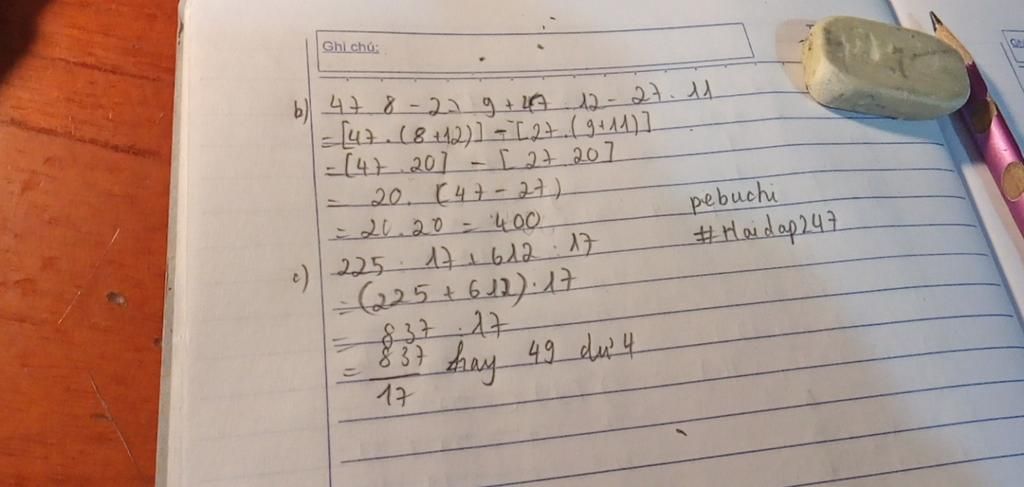 Ghi chú:
b) 47 8 - 27 9 + 47 . 12 - 27 . 11
= [47 . (8+12)] - [27 . (9+11)]
= [47 . 20] - [27 20]
= 20 . (47 - 27)
= 20 . 20 = 400
pebuchi
#Hoidap247
c) 225 : 17 + 612 : 17
= (225 + 612) : 17
= 837 : 17
= 837/17 hay 49 dư 4